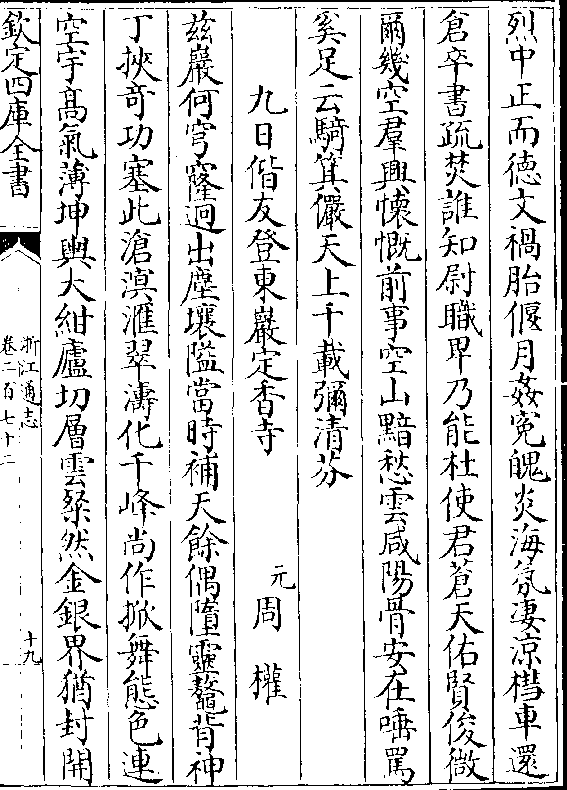 烈中正而徳文禍胎偃月姦寃魄炎海氛淒涼檋車還
倉卒書疏焚誰知尉職卑乃能杜使君蒼天佑賢俊微
爾幾空羣興懐慨前事空山黯愁雲咸陽骨安在唾罵
奚足云騎箕儼天上千載彌清芬
九日偕友登東巖定香寺
元周權
兹巖何穹窿迥出塵壤隘當時補天餘偶墮靈鼇背神
丁挾奇功塞此滄溟滙翠濤化千峰尚作掀舞態色連
空宇髙氣薄坤輿大紺廬切層雲粲然金銀界猶封開
欽定四庫全書
浙江通志
卷二百七十二
十九